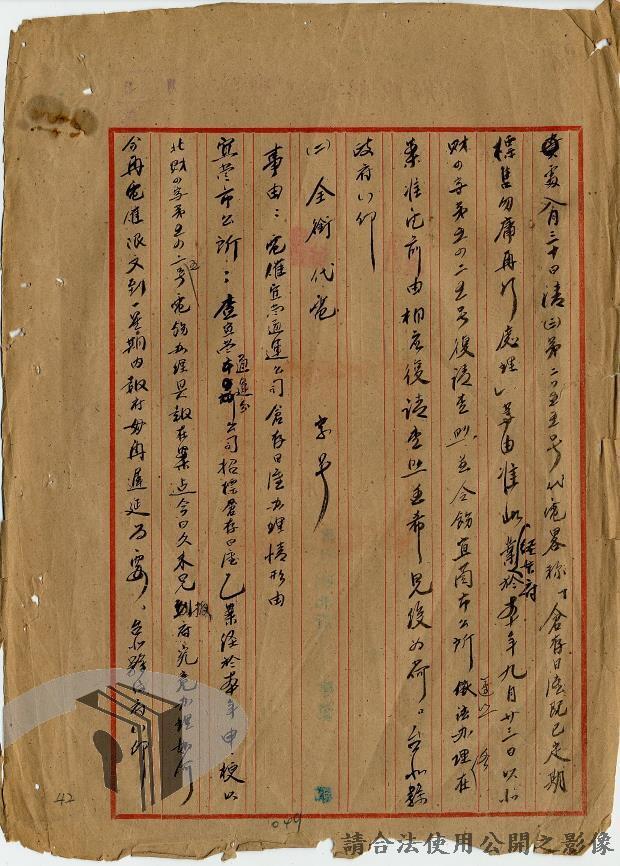 貴處八月三十日清(三)第二五五号代電畧称「倉存日產既已定期
標售勿庸再行處理」等由准此業經本府於本年九月廿三日以北
財四字第五四二五号復請查照並令飭宜蘭市公所遵照依法办理在
案准電前由相應復請查照並希見復为荷。台北縣
政府(  )印
(二)全銜代電 字号
事由：電催宜蘭通運公司倉存日產办理情形由
宜蘭市公所：查宜蘭通運公司招標倉存日產乙案經於本年申梗以
北財四字第五四二五号電飭办理具報在案迄今日久未見報府究竟办理如何
合再電催限文到一星期内報府毋再遲延为要。台北縣政府(  )印
42
049
請合法使用公開之影像